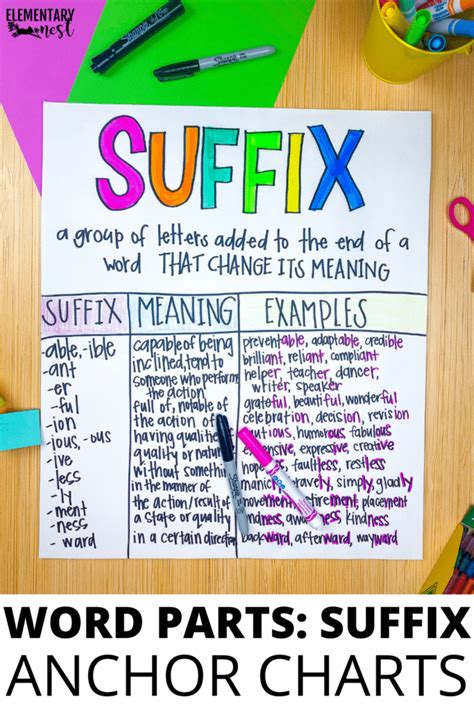 ELEMENTARY
nest
SUFFIX
a group of letters added to the end of a
word THAT CHANGE ITS MEANING
SUFFIX MEANING EXAMPLES
-able, -ible capable of being preventable, adaptable, credible
-ant inclined, tend to brilliant, reliant, compliant
-er someone who perform the action helper, teacher, dancer, writer, speaker
-ful full of, notable of grateful, beautiful, wonderful
-ion the action of celebration, decision, revision
-ious, -ous having humorous, fabulous
-ive quality or expressive, creative
-less without faultless, restless
-ly in the manner of simply, gladly
-ment the action/result of placement
-ness a state or quality kindness
-ward in a certain backward, afterward, wayward
Sharpie
Sharpie
WORD PARTS: SUFFIX
ANCHOR CHARTS